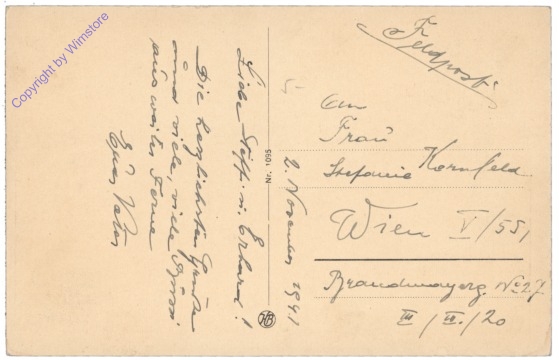 Copyright by Wimstore
Liebe Steffi u. Erhard!
Die herzlichsten Grüße
und viele, viele Bussi
aus weiter Ferne
Euer Vater
2. November 1941
Nr. 1095
HB
Feldpost
An
Frau
Stefanie Kornfeld
Wien V/55,
Brandmayerg. No 27
III/II./20